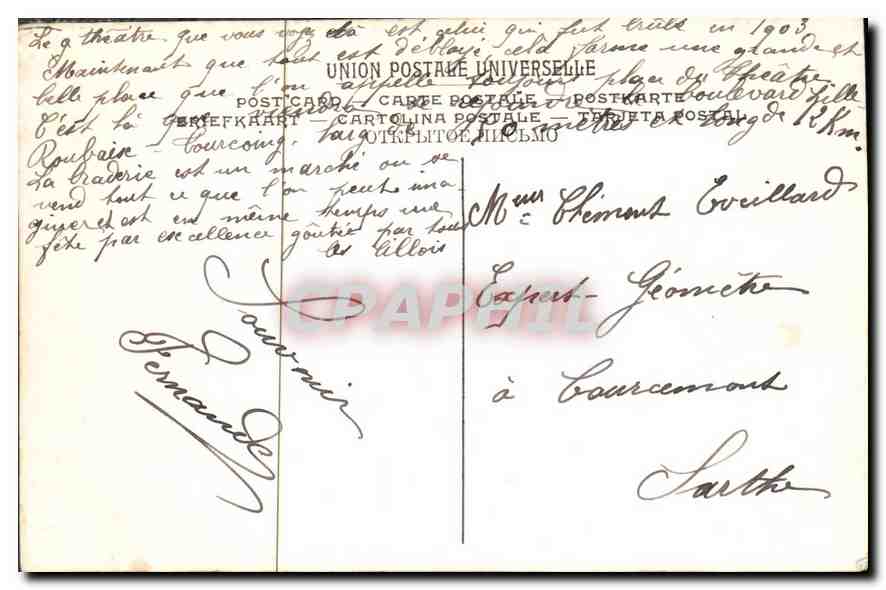 Le g théâtre que vous voyez là est celui qui fut brûlé en 1903
Maintenant que tout est déblayé cela forme une grande et
UNION POSTALE UNIVERSELLE
belle place que l'on appelle toujours place du Théâtre
POSTCARD — CARTE POSTALE — POSTKARTE
C'est là que viendra se joindre le boulevard Lille
BRIEFKAART — CARTOLINA POSTALE — TARJETA POSTAL
Roubaix – Tourcoing, large de 50 mètres et long de 12 Km.
ОТКРЫТОЕ ПИСЬМО
La braderie est un marché où se
vend tout ce que l'on peut ima-
giner et est en même temps une
fête par excellence goûtée par tous
les lillois
Souvenir
Fernand
Mr Clément Eveillard
Expert-Géomètre
à Courcemont
Sarthe
CPAPHIL